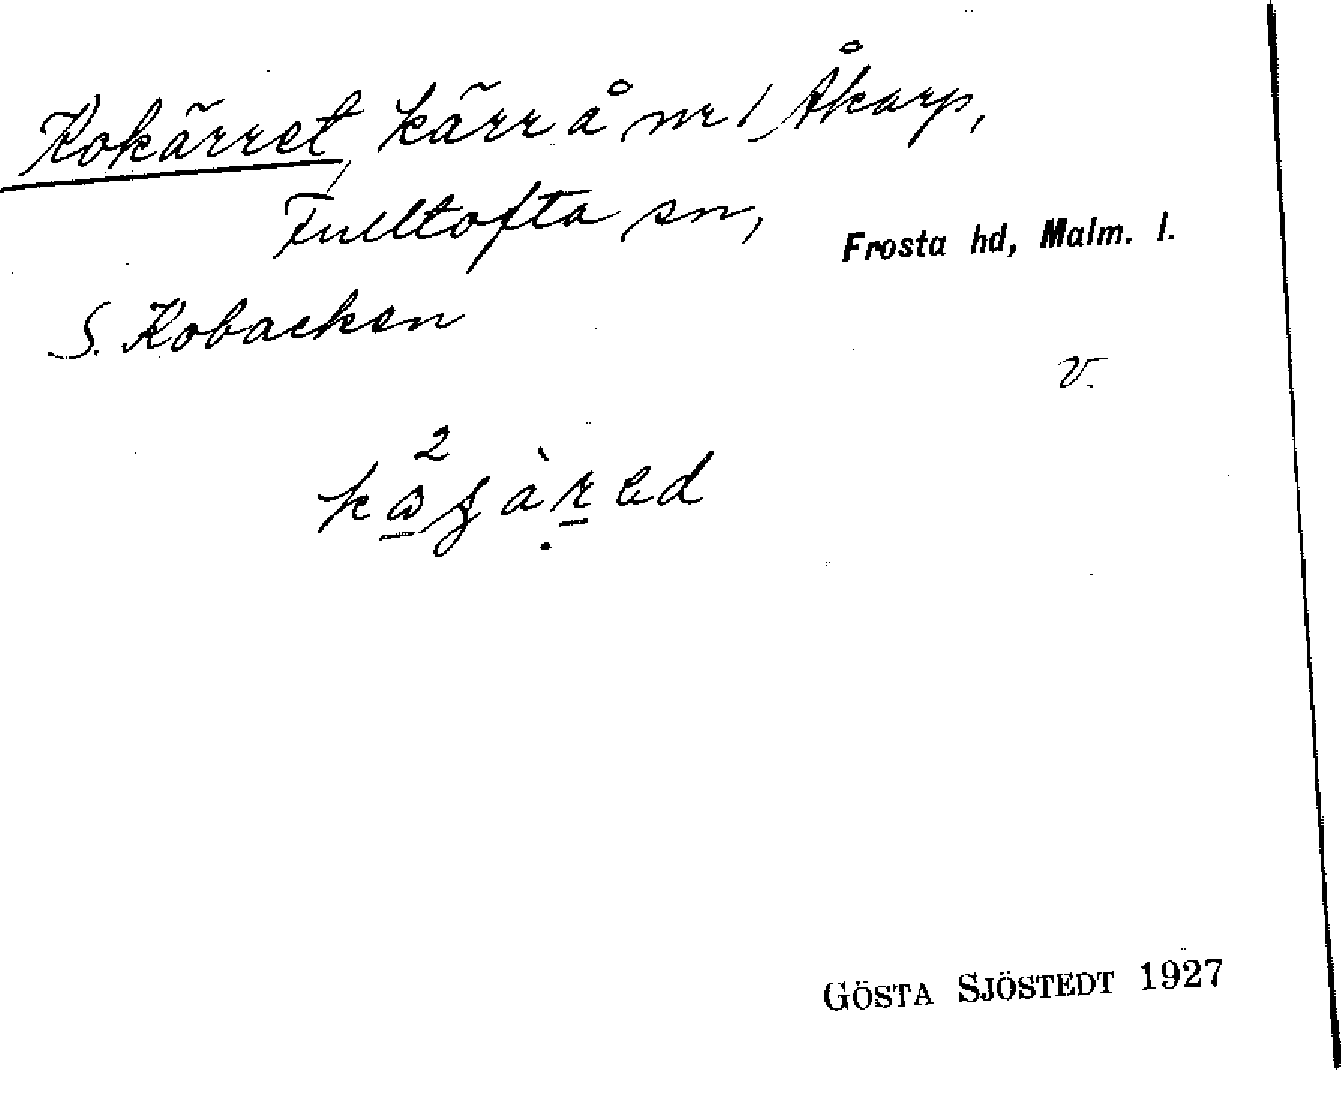 Kokärret, kärr å nr 1 Åkarp,
Fulltofta sn, Frosta hd, Malm. l.
S. Kobacken
v.
GÖSTA SJÖSTEDT 1927